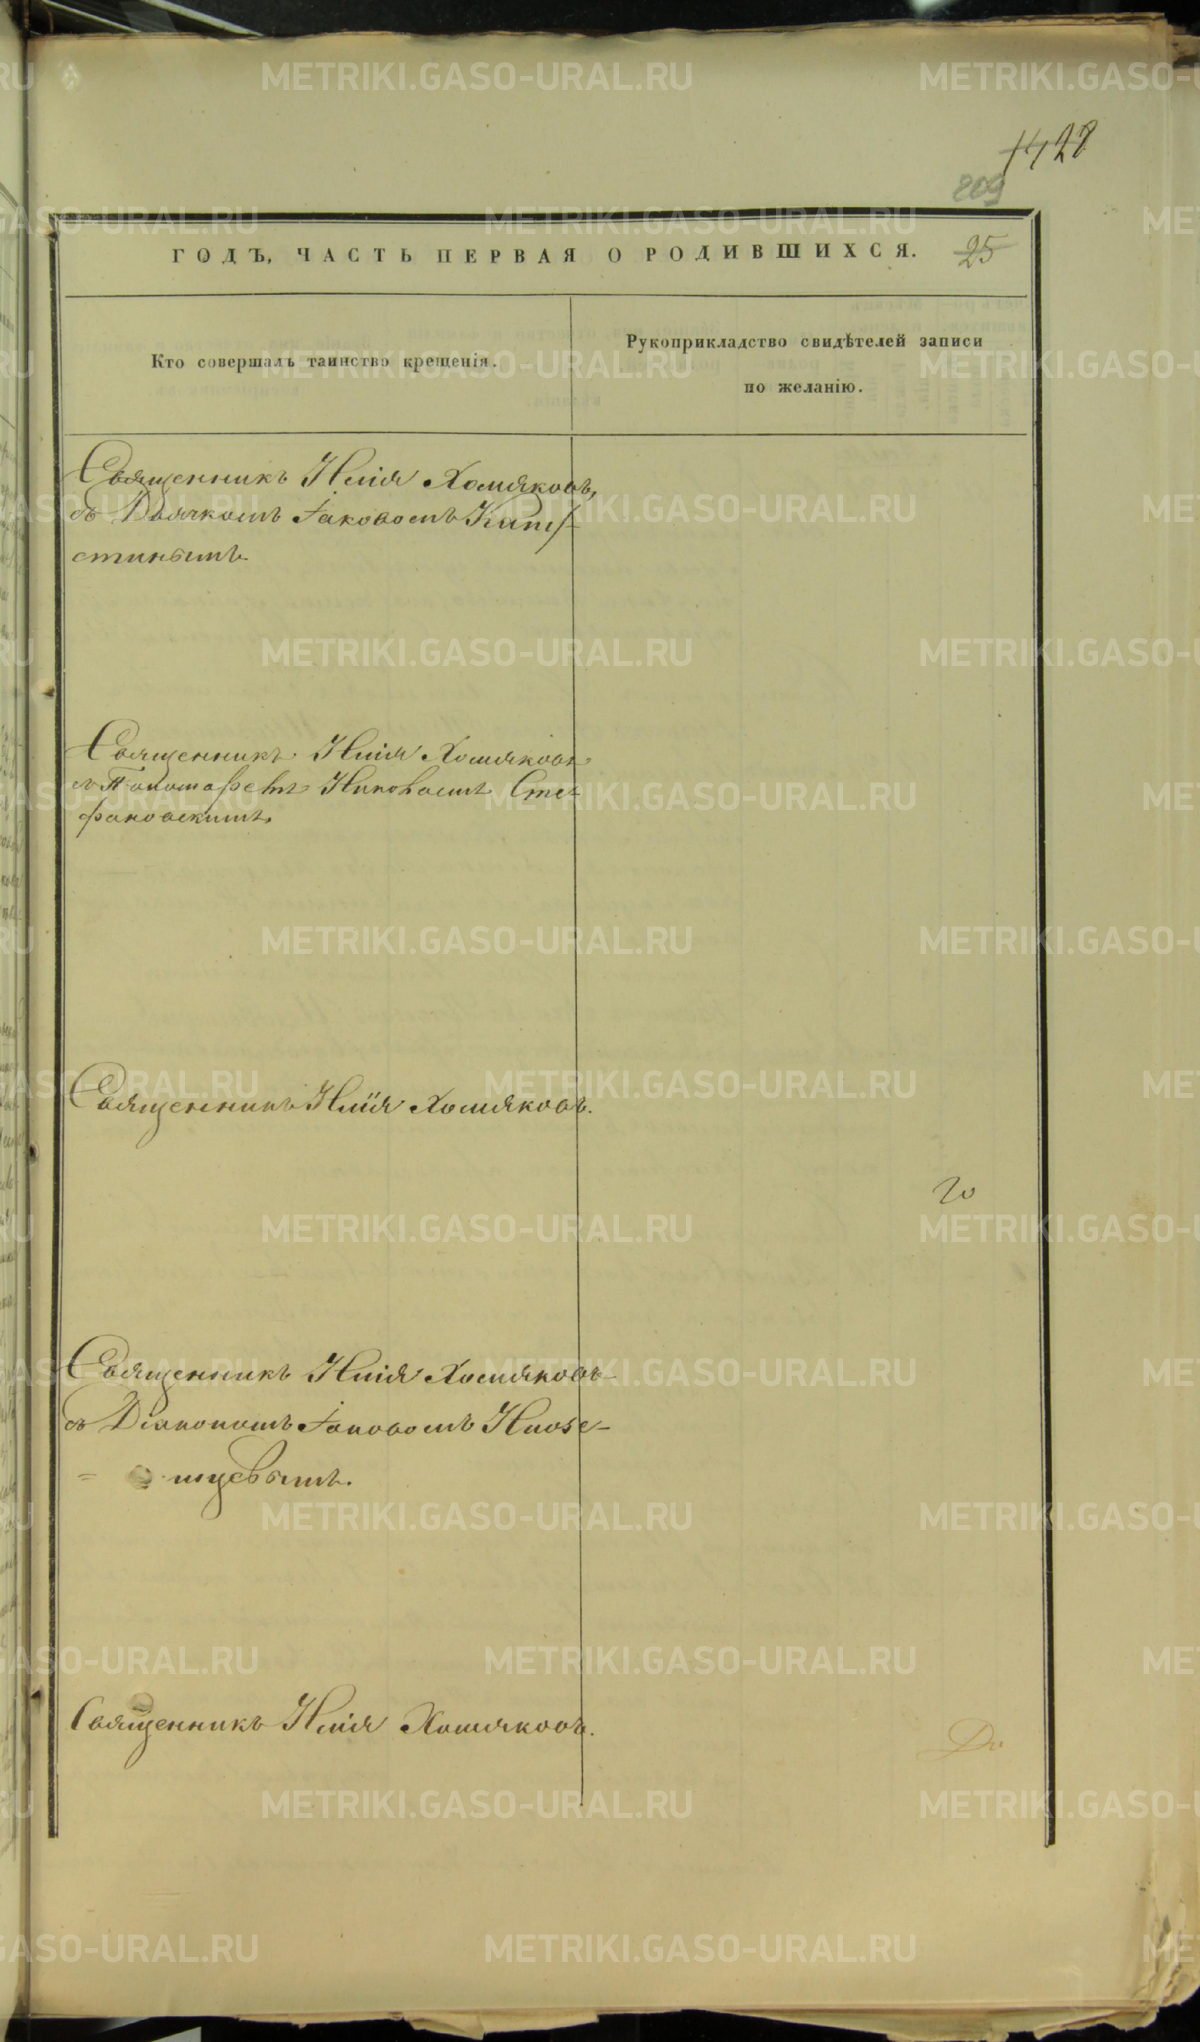 428
209
ГОДЪ, ЧАСТЬ ПЕРВАЯ О РОДИВШИХСЯ. 25
Кто совершалъ таинство крещенія.
Рукоприкладство свидѣтелей записи
по желанію.
Священникъ Илія Хомяковъ,
съ Дьячкомъ Іаковомъ
стинымъ.
Священникъ Илія Хомяковъ
съ Пономаремъ Николаемъ Сте-
фановскимъ.
Священникъ Илія Хомяковъ.
Священникъ Илія Хомяковъ
съ Діакономъ Іаковомъ
Священникъ Илія Хомяковъ.
METRIKI.GASO-URAL.RU